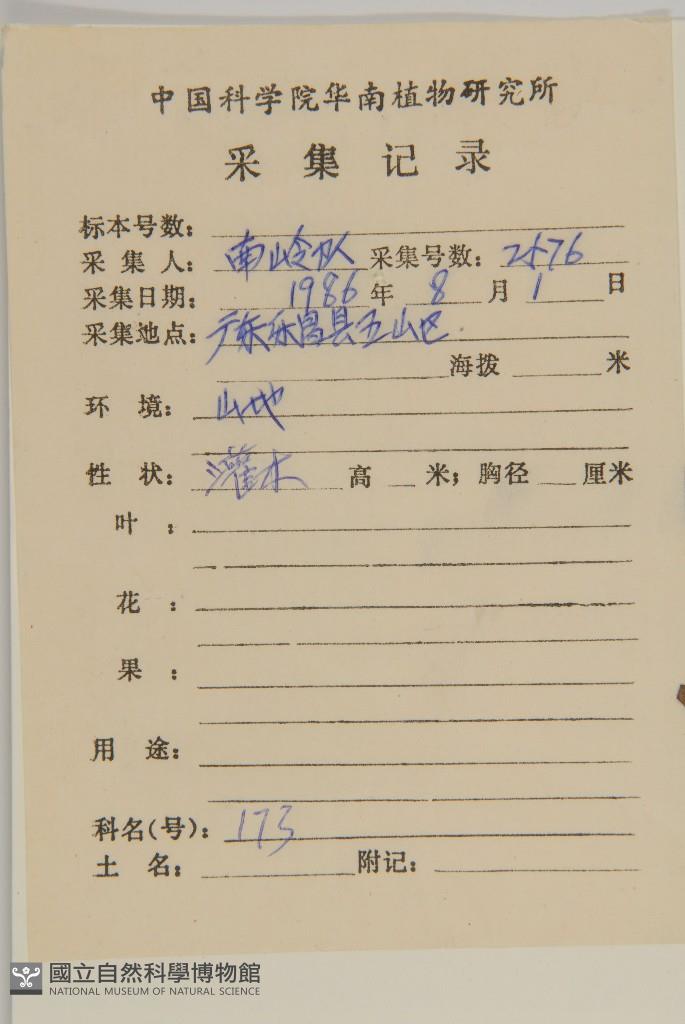 中国科学院华南植物研究所
采集记录
标本号数：
采集人：南岭队 采集号数：2576
采集日期：1986年8月1日
采集地点：广东乐昌县五山区.
海拨 米
环境：山地
性状：灌木 高 米；胸径 厘米
叶：
花：
果：
用途：
科名(号)：173
土名： 附记：
國立自然科學博物館
NATIONAL MUSEUM OF NATURAL SCIENCE